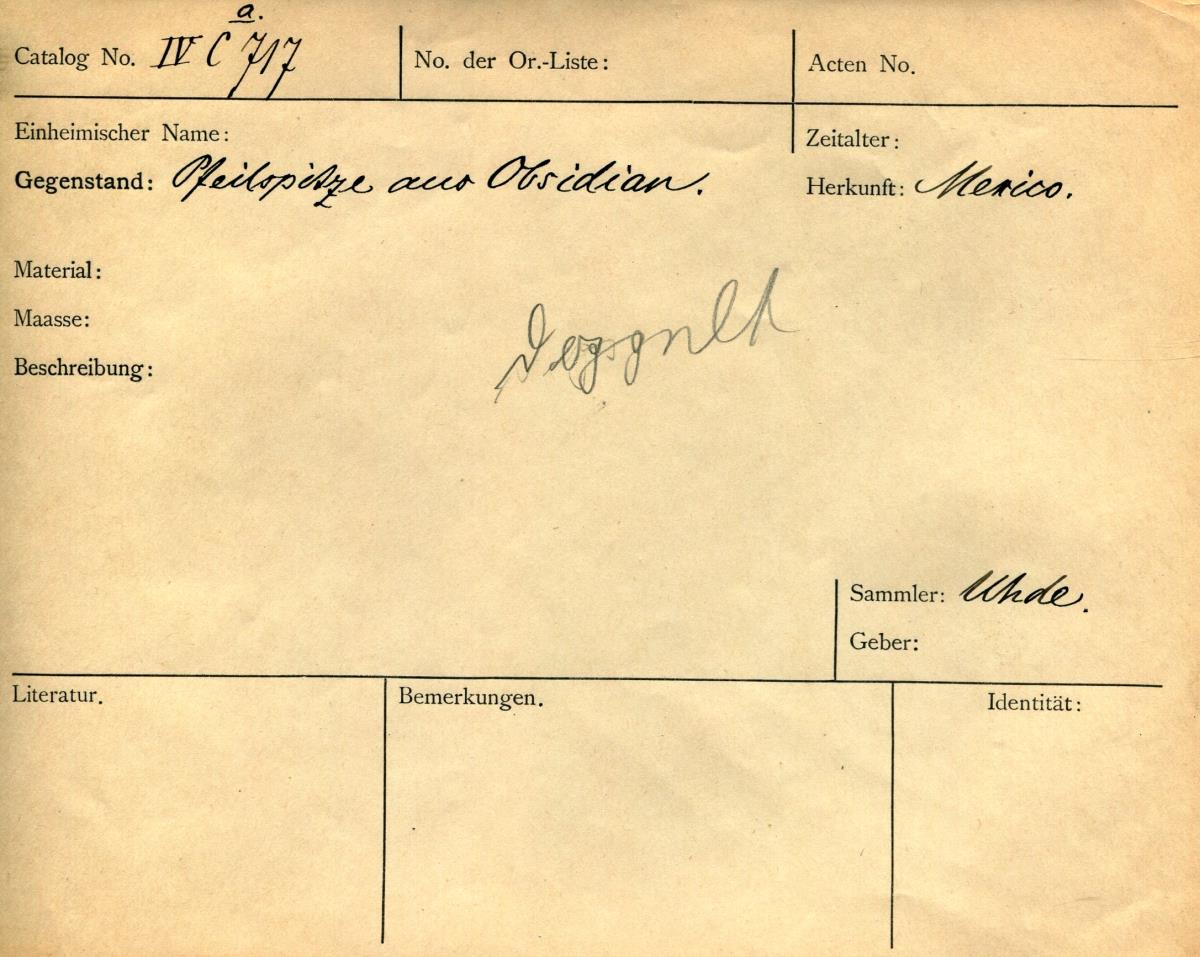 a.
Catalog No. IV C 717
No. der Or.-Liste:
Acten No.
Einheimischer Name:
Zeitalter:
Gegenstand: Pfeilspitze aus Obsidian.
Herkunft: Mexico.
Material:
Maasse:
Beschreibung:
Sammler: Uhde.
Geber:
Literatur.
Bemerkungen.
Identität: